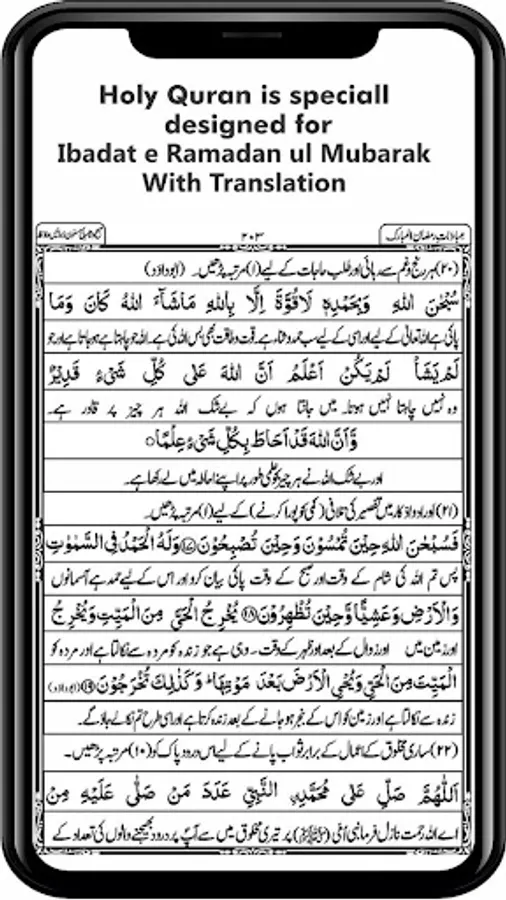 Holy Quran is speciall
designed for
Ibadat e Ramadan ul Mubarak
With Translation
عباداتِ رمضان المبارک
۲۰۳
(۲۰) ہر رنج و غم سے رہائی اور طلب حاجات کے لیے (۱) مرتبہ پڑھیں۔ (ابوداؤد)
سُبْحٰنَ اللهِ وَبِحَمْدِهٖ لَاقُوَّةَ اِلَّا بِاللهِ مَاشَآءَ اللهُ كَانَ وَمَا
پاکی ہے اللہ تعالیٰ کے لیے اور اسی کے لیے سب حمد و ثناء ہے۔ قوت و طاقت بھی بس اللہ کی ہے۔ اللہ جو چاہتا ہے ہو جاتا ہے اور جو
لَمْ يَشَأْ لَمْ يَكُنْ اَعْلَمُ اَنَّ اللهَ عَلٰى كُلِّ شَىْءٍ قَدِيْرٌ
وہ نہیں چاہتا نہیں ہوتا۔ میں جانتا ہوں کہ بے شک اللہ ہر چیز پر قادر ہے۔
وَّاَنَّ اللهَ قَدْ اَحَاطَ بِكُلِّ شَىْءٍ عِلْمًا○
اور بے شک اللہ نے ہر چیز کو علمی طور پر اپنے احاطہ میں لے رکھا ہے۔
(۲۱) اور اد و اذکار میں تقصیر کی تلافی (کمی کو پورا کرنے) کے لیے (۱) مرتبہ پڑھیں۔
فَسُبْحٰنَ اللهِ حِيْنَ تُمْسُوْنَ وَحِيْنَ تُصْبِحُوْنَ ⑰ وَلَهُ الْحَمْدُ فِى السَّمٰوٰتِ
پس تم اللہ کی شام کے وقت اور صبح کے وقت پاکی بیان کرو اور اس کے لیے حمد ہے آسمانوں
وَالْاَرْضِ وَعَشِيًّا وَّحِيْنَ تُظْهِرُوْنَ ⑱ يُخْرِجُ الْحَىَّ مِنَ الْمَيِّتِ وَيُخْرِجُ
اور زمین میں اور زوال کے بعد اور ظہر کے وقت۔ وہی ہے جو زندہ کو مردہ سے نکالتا ہے اور مردہ کو
الْمَيِّتَ مِنَ الْحَىِّ وَيُحْىِ الْاَرْضَ بَعْدَ مَوْتِهَا ؕ وَكَذٰلِكَ تُخْرَجُوْنَ ⑲ (ابوداؤد)
زندہ سے نکالتا ہے اور زمین کو اس کے بنجر ہو جانے کے بعد زندہ کرتا ہے اور اسی طرح تم نکالے جاؤ گے۔
(۲۲) ساری مخلوق کے اعمال کے برابر ثواب پانے کے لیے اس درود پاک کو (۱۰) مرتبہ پڑھیں۔
اَللّٰهُمَّ صَلِّ عَلٰى مُحَمَّدِنِ النَّبِىِّ عَدَدَ مَنْ صَلّٰى عَلَيْهِ مِنْ
اے اللہ رحمت نازل فرما نبی اُمّی (ﷺ) پر تیری مخلوق میں سے آپؐ پر درود بھیجنے والوں کی تعداد کے